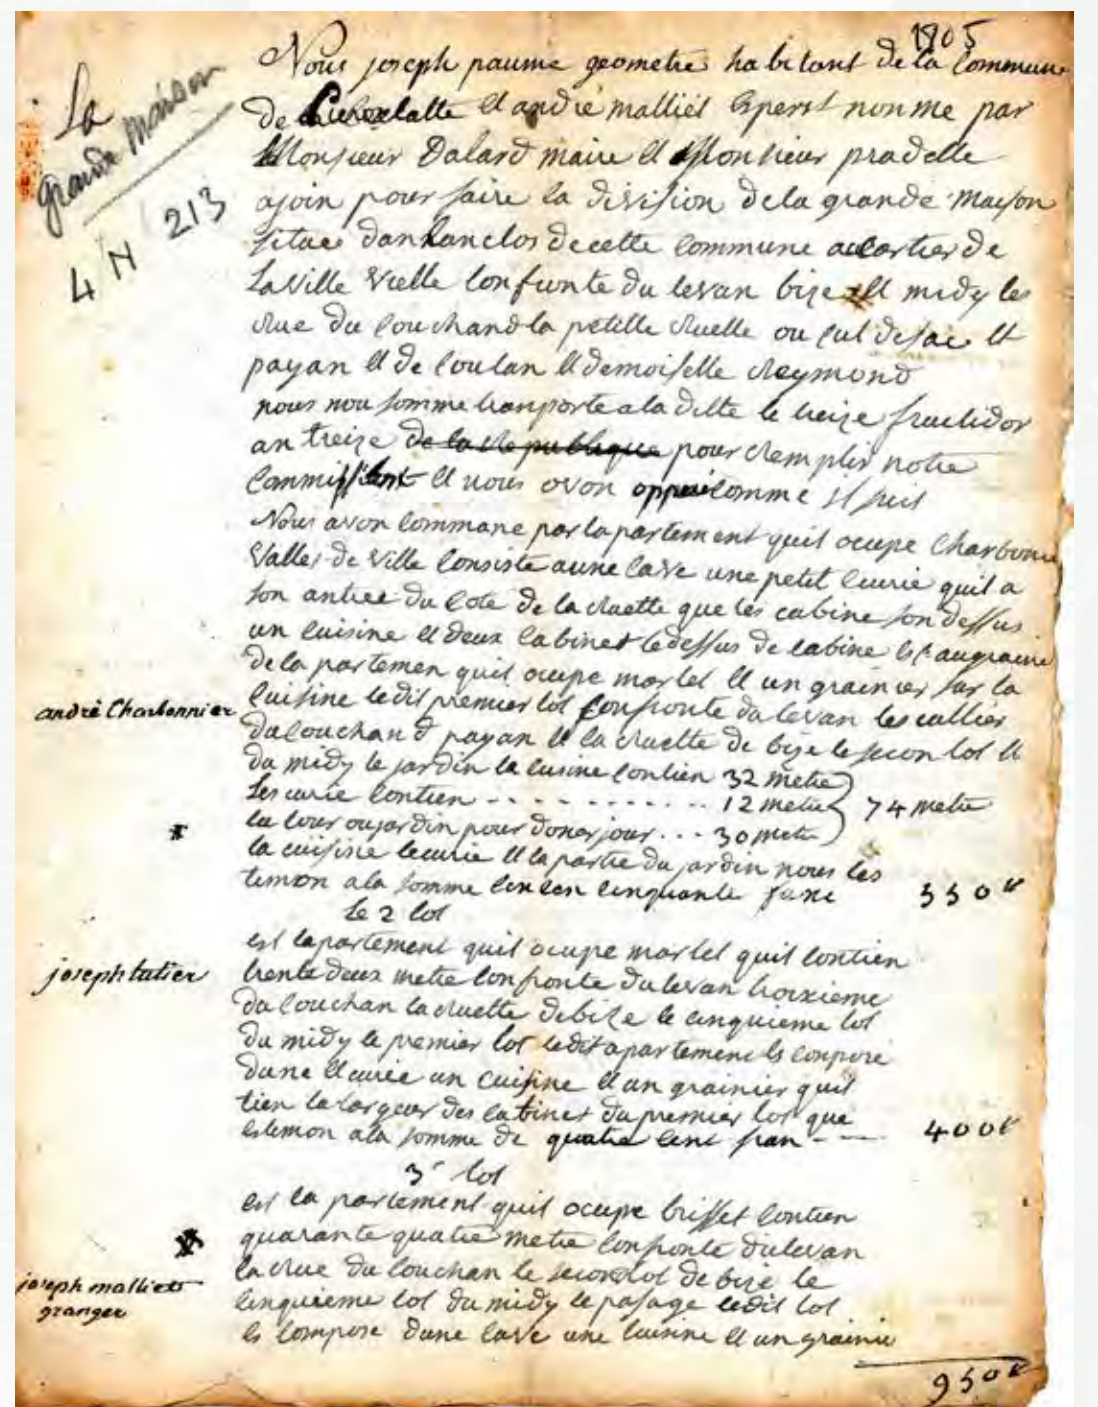 1805
La
grande maison
4 N 213
Nous joseph paume geometre habitant de la Commune
de et andré malliet Expert nonme par
Monsieur Dalard maire et Monsieur pradelle
ajoin pour faire la division dela grande maison
sitae danlanclos decette Commune acartier de
La Ville Vielle Confronte du levan bize et midy les
Rue du Couchand la petitte Ruelle ou cul desac et
payan et de Coulan et demoiselle Reymond
nous nou somme transporte ala ditte le treize fructidor
an treize de la Republique pour Remplir notre
Commission et nous avon comme il suit
Nous avon Commance par lapartement quil ocupe Charbonie
Valles de Ville Consiste aune Cave une petit Ecurie quil a
son antree du Cote de la Ruette que les cabine son dessus
un Cuisine et deux Cabinet ledessus de Cabine
de la partemen quil ocupe martel et un grainier sur la
Cuisine ledit premier lot Confronte du levan les
du Couchand payan et la Ruette de bize le secon lot et
du midy le jardin la Cusine Contien 32 metre
Lescurie Contien - - - - - - - - - - - 12 metre 74 metre
la Cour oujardin pour doner jour . . . 30 metre
la cuisine lecurie et la partie du jardin nous les
temon ala somme Cinquante franc 550#
Le 2 lot
andré Charbonnier
est lapartement quil ocupe martel quil Contien
trente deux metre Confronte du levan troixieme
du Couchan la Ruette debize le Cinquieme lot
du midy le premier lot ledit apartement Es Conpose
dune Ecurie un Cuisine et un grainier quil
tien la largeur des Cabinet du premier lot que
estemon ala somme de quatre Cent fran - - 400#
joseph tatier
3e lot
est la partement quil ocupe brisset Contien
quarante quatre metre Confronte dulevan
la Rue du Couchan le secon lot de bize le
Cinquieme lot du midy le pasage ledit lot
Es Compose dune Cave une Cuisine et un grainie
joseph malliet
granger
950#